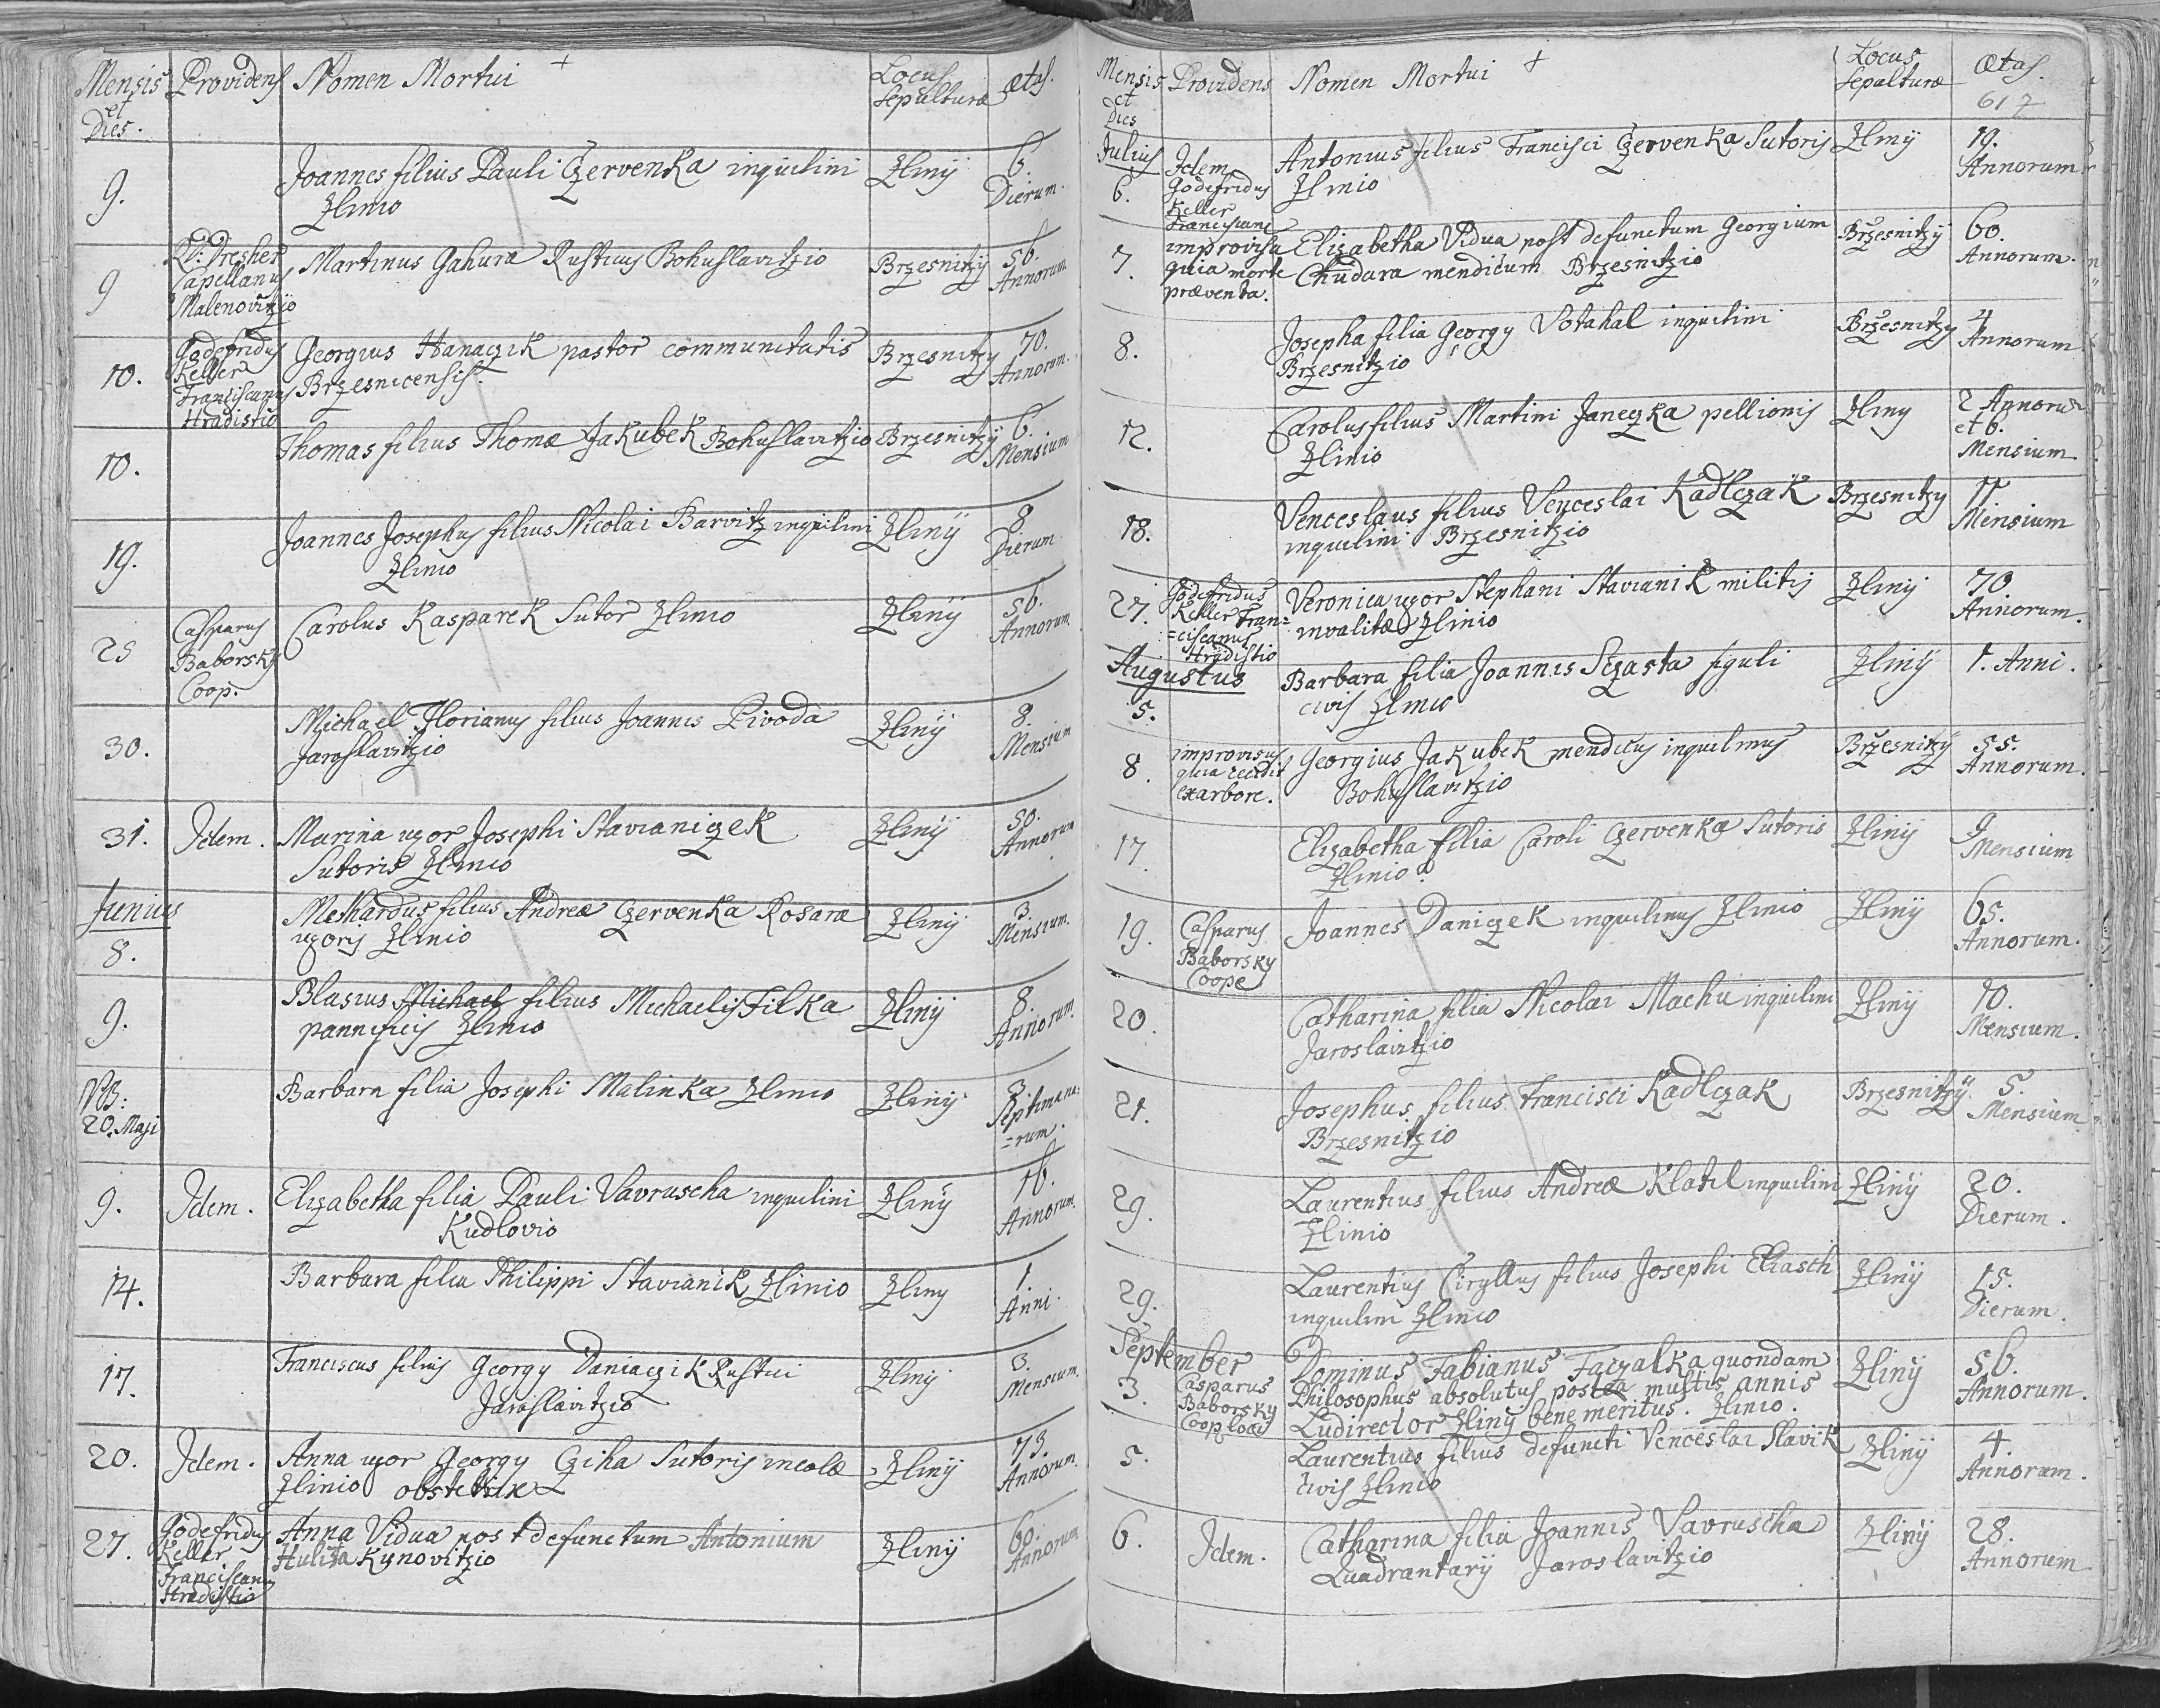 Mensis Providens Nomen Mortui + Locus Ætas.
et Sepulturæ
Dies.
9. Joannes filius Pauli Czervenka inquilini Zliny 6.
Zlinio Dierum.
9 Dresher Martinus Gahura Rusticus Bohuslavitzio Brzesnitzy 56.
Capellanus Annorum
Malenovitzio
10. Godefridus Georgius Hanaczik pastor communitatis Brzesnitzy 70.
Keller Brzesnicensis. Annorum.
Franciscanus
Hradistio
10. Thomas filius Thomæ Jakubek Bohuslavitzio Brzesnitzy 6.
Mensium
19. Joannes Josephus filius Nicolai Barvitz inquilini Zliny 8
Zlinio Dierum
25 Casparus Carolus Kasparek Sutor Zlinio Zliny 56.
Baborsky Annorum
Coop.
30. Michael Florianus filius Joannis Pivoda Zliny 8.
Jaroslavitzio Mensium
31. Idem. Marina uxor Josephi Stavianiczek Zliny 50.
Sutoris Zlinio Annorum
Junius Methardus filius Andreæ Czervenka Rosaræ Zliny 3.
uxoris Zlinio Mensium.
8.
9. Blasius Michael filius Michaelis Filka Zliny 8.
pannificis Zlinio Annorum.
NB: Barbara filia Josephi Malinka Zlinio Zliny 3
20. Maji Septimana=
=rum.
9. Idem. Elizabetha filia Pauli Vavruscha inquilini Zliny 16.
Kudlovio Annorum.
14. Barbara filia Philippi Stavianik Zlinio Zliny 1.
Anni.
17. Franciscus filius Georgy Daniaczik Rustici Zliny 3.
Jaroslavitzio Mensium.
20. Idem. Anna uxor Georgy Cziha Sutoris incolæ Zliny 73.
Zlinio obstetrix Annorum.
27. Godefridus Anna Vidua post defunctum Antonium Zliny 60.
Keller Hulita Kynovitzio Annorum
Franciscanus
Hradistio
Mensis Providens Nomen Mortui + Locus Ætas.
et Sepulturæ 617
Dies
Julius Idem Antonius filius Francisci Czervenka Sutoris Zliny 19.
6. Godefridus Zlinio Annorum
Keller
Franciscanus
7. improvisa Elizabetha Vidua post defunctum Georgium Brzesnitzy 60.
quia morte Chudara mendicum Brzesnitzio Annorum.
præventa.
8. Josepha filia Georgy Votahal inquilini Brzesnitzy 4
Brzesnitzio Annorum
12. Carolus filius Martini Janeczka pellionis Zliny 2 Annorum
Zlinio et 6.
Mensium
18. Venceslaus filius Venceslai Kadlczak Brzesnitzy 11
inquilini Brzesnitzio Mensium
27. Godefridus Veronica uxor Stephani Stavianik militis Zliny 70.
Keller Fran= invalitæ Zlinio Annorum.
=ciscanus
Hradistio
Augustus Barbara filia Joannis Sczasta figuli Zliny 1. Anni.
5. civis Zlinio
8. improvisus Georgius Jakubek mendicus inquilinus Brzesnitzy 55.
quia cecidit Bohuslavitzio Annorum.
ex arbore.
17. Elizabetha filia Caroli Czervenka Sutoris Zliny 9
Zlinio Mensium
19. Casparus Joannes Daniczek inquilinus Zlinio Zliny 65.
Baborsky Annorum.
Coope
20. Catharina filia Nicolai Machu inquilini Zliny 10.
Jaroslavitzio Mensium.
21. Josephus filius Francisci Kadlczak Brzesnitzy 5.
Brzesnitzio Mensium
29. Laurentius filius Andreæ Klatil inquilini Zliny 20.
Zlinio Dierum.
29. Laurentius Ciryllus filius Josephi Eliasch Zliny 15.
inquilini Zlinio Dierum.
September Dominus Fabianus Faczalka quondam Zliny 56.
3. Casparus Philosophus absolutus postea multis annis Annorum.
Baborsky Ludirector Zliny bene meritus. Zlinio.
Coop loci
5. Laurentius filius defuncti Venceslai Slavik Zliny 4.
civis Zlinio Annorum.
6. Idem. Catharina filia Joannis Vavruscha Zliny 28.
Quadrantarij Jaroslavitzio Annorum